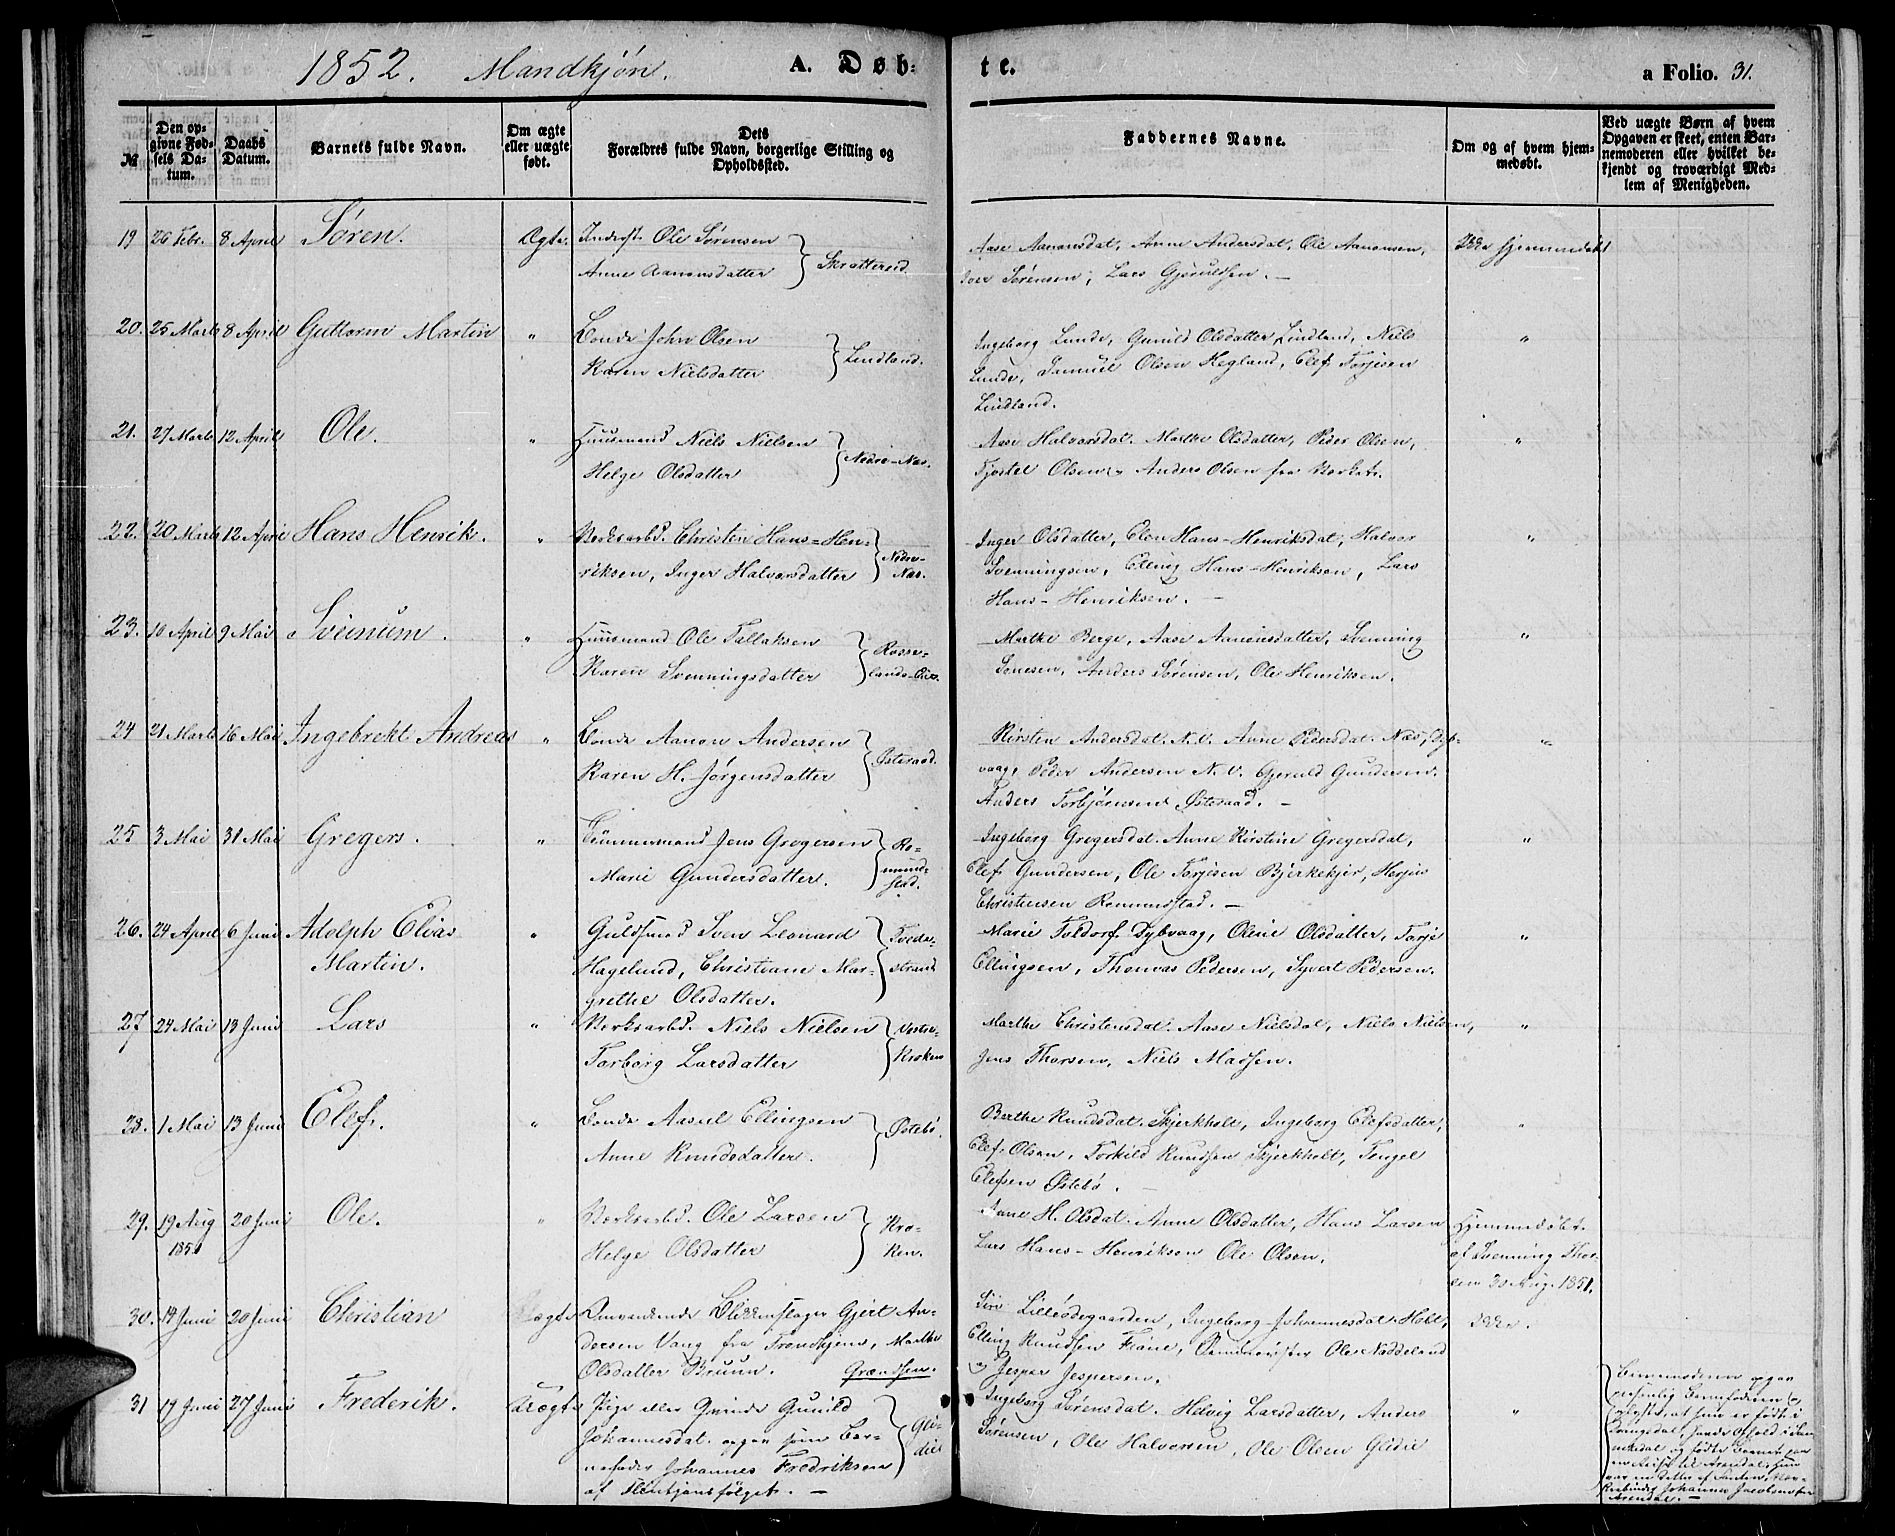 1852. Mandkjøn. A. Døb- te. a Folio. 31.
№
Den op-
givne Fød-
sels Da-
tum.
Daabs
Datum.
Barnets fulde Navn.
Om ægte
eller uægte
født.
Dets
Forældres fulde Navn, borgerlige Stilling og
Opholdssted.
Faddernes Navne.
Om og af hvem hjem-
medøbt.
Ved uægte Børn af hvem
Opgaven er skeet, enten Bar-
nemoderen eller hvilket be-
kjendt og troværdigt Med-
lem af Menigheden.
19 26 Febr. 8 April Søren. Ægte. Inderst Ole Sørensen
Anne Aanonsdatter } Skrattereid
Aase Aanonsdat, Anne Andersdat, Ole Aanonsen,
Iver Sørensen, Lars Gjeruldsen. —
Ikke hjemmedøbt
20. 25 Marts 8 April Guttorm Martin " Bonde John Olsen
Karen Nielsdatter } Lindland.
Ingeborg Lunde, Gunild Olsdatter Lindland, Niels
Lunde, Samuel Olsen Hegland, Elef Torjesen
Lindland.
"
21. 27 Marts 12 April Ole. " Huusmand Niels Nielsen
Helge Olsdatter } Nedre-Næs.
Aase Halvorsdat. Marthe Olsdatter, Peder Olsen,
Tjostel Olsen, Anders Olsen fra Verket.
"
22. 20 Marts 12 April Hans Henrik. " Verksarbd. Christen Hans-Hen-
riksen, Inger Halvorsdatter } Nedre-
Næs.
Inger Olsdatter, Elen Hans-Henriksdat, Halvor
Svenningsen, Elling Hans-Henriksen, Lars
Hans-Henriksen. —
"
23. 10 April 9 Mai Sveinum. " Huusmand Ole Tallaksen
Karen Svenningsdatter } Rosse-
lands-Eier.
Marthe Berge, Aase Aanensdatter, Svenning
Anders Sørensen, Ole Henriksen.
"
24 21 Marts 16 Mai Ingebrekt Andreas " Bonde Aanon Andersen
Karen H. Jørgensdatter } Østeraad.
Kirsten Andersdat. N.V. Anne Pedersdat. Næs, Dyb-
vaag, Peder Andersen N.V. Gjeruld Gundersen.
Anders Torbjørnsens Østeraad. —
"
25 3 Mai 31 Mai Gregers. " Tømmermand Jens Gregersen
Marie Gundersdatter. } Ro-
mund-
stad.
Ingeborg Gregersdat. Anne Kirstine Gregersdat,
Elef Gundersen, Ole Torjesen Bjerkekjer, Herjus
Christensen Romundstad. —
"
26. 24 April 6 Juni Adolph Elias
Martin. " Guldsmed Sven Leonard
Hagelund, Christiane Mar-
grethe Olsdatter. } Tvede-
strand
Marie Foldorf Dybvaag, Oline Olsdatter, Torje
Ellingsen, Thomas Pedersen, Syvert Pedersen.
"
27 24 Mai 13 Juni Lars " Verksarbd. Niels Nielsen
Torborg Larsdatter } Vestre-
Kroken
Marthe Christensdat. Aase Nielsdat, Niels Nielsen,
Jens Thorsen, Niels Madsen.
"
28. 1 Mai 13 Juni Elef. " Bonde Aasul Ellingsen
Anne Knudsdatter. } Østebø.
Berthe Knudsdat. Skjerkholt, Ingeborg Elefsdatter,
Elef Olsen, Torkild Knudsen Skjerkholt, Tengel
Elefsen Østebø. —
"
29. 19 Aug
1851 20 Juni Ole. " Verksarbd. Ole Larsen
Helge Olsdatter } Kro-
ken.
Anne H. Olsdat. Anne Olsdatter, Hans Larsen
Lars Hans-Henriksen Ole Olsen.
Hjemmedøbt
af Svenning Thor-
sen 30 Aug. 1851.
30. 14 Juni 20 Juni Christian Uægte Omvankende Blikkenslager Gjert An-
dersen Vang fra Trondhjem, Marthe
Olsdatter Bruun. Grændsen.
Siri Lilleødegaarden, Ingeborg Johannesdat. Holt,
Elling Knudsen Fiane, Ole Naddeland
Jesper Jespersen.
Ikke.
31 17 Juni 27 Juni Frederik. Uægte Pige eller Qvinde Gunild
Johannesdat. opgav som Bar-
nefader Johannes Fredriksen
af Fløitjansfølget. — } Gli-
die
Ingeborg Sørensdat. Helvig Larsdatter, Anders
Sørensen, Ole Halvorsen, Ole Olsen Glidie
"
Barnemoderen opgav
personlig Barnefaderen
at hun er født i
Drangedal, havde Ophold i
og fødte Barnet paa
en Reise til Arendal, hun
var en Datter af
Johannes Jacobsen fra
Arendal. —